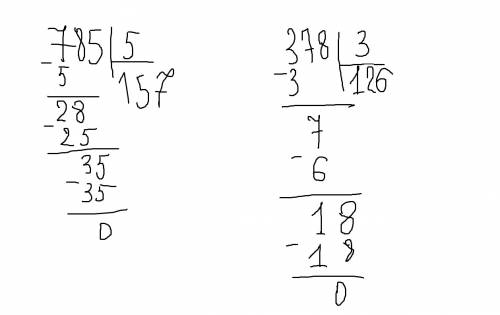 785 | 5
-5 | 157
28
-25
35
-35
0
378 | 3
-3 | 126
7
-6
18
-18
0